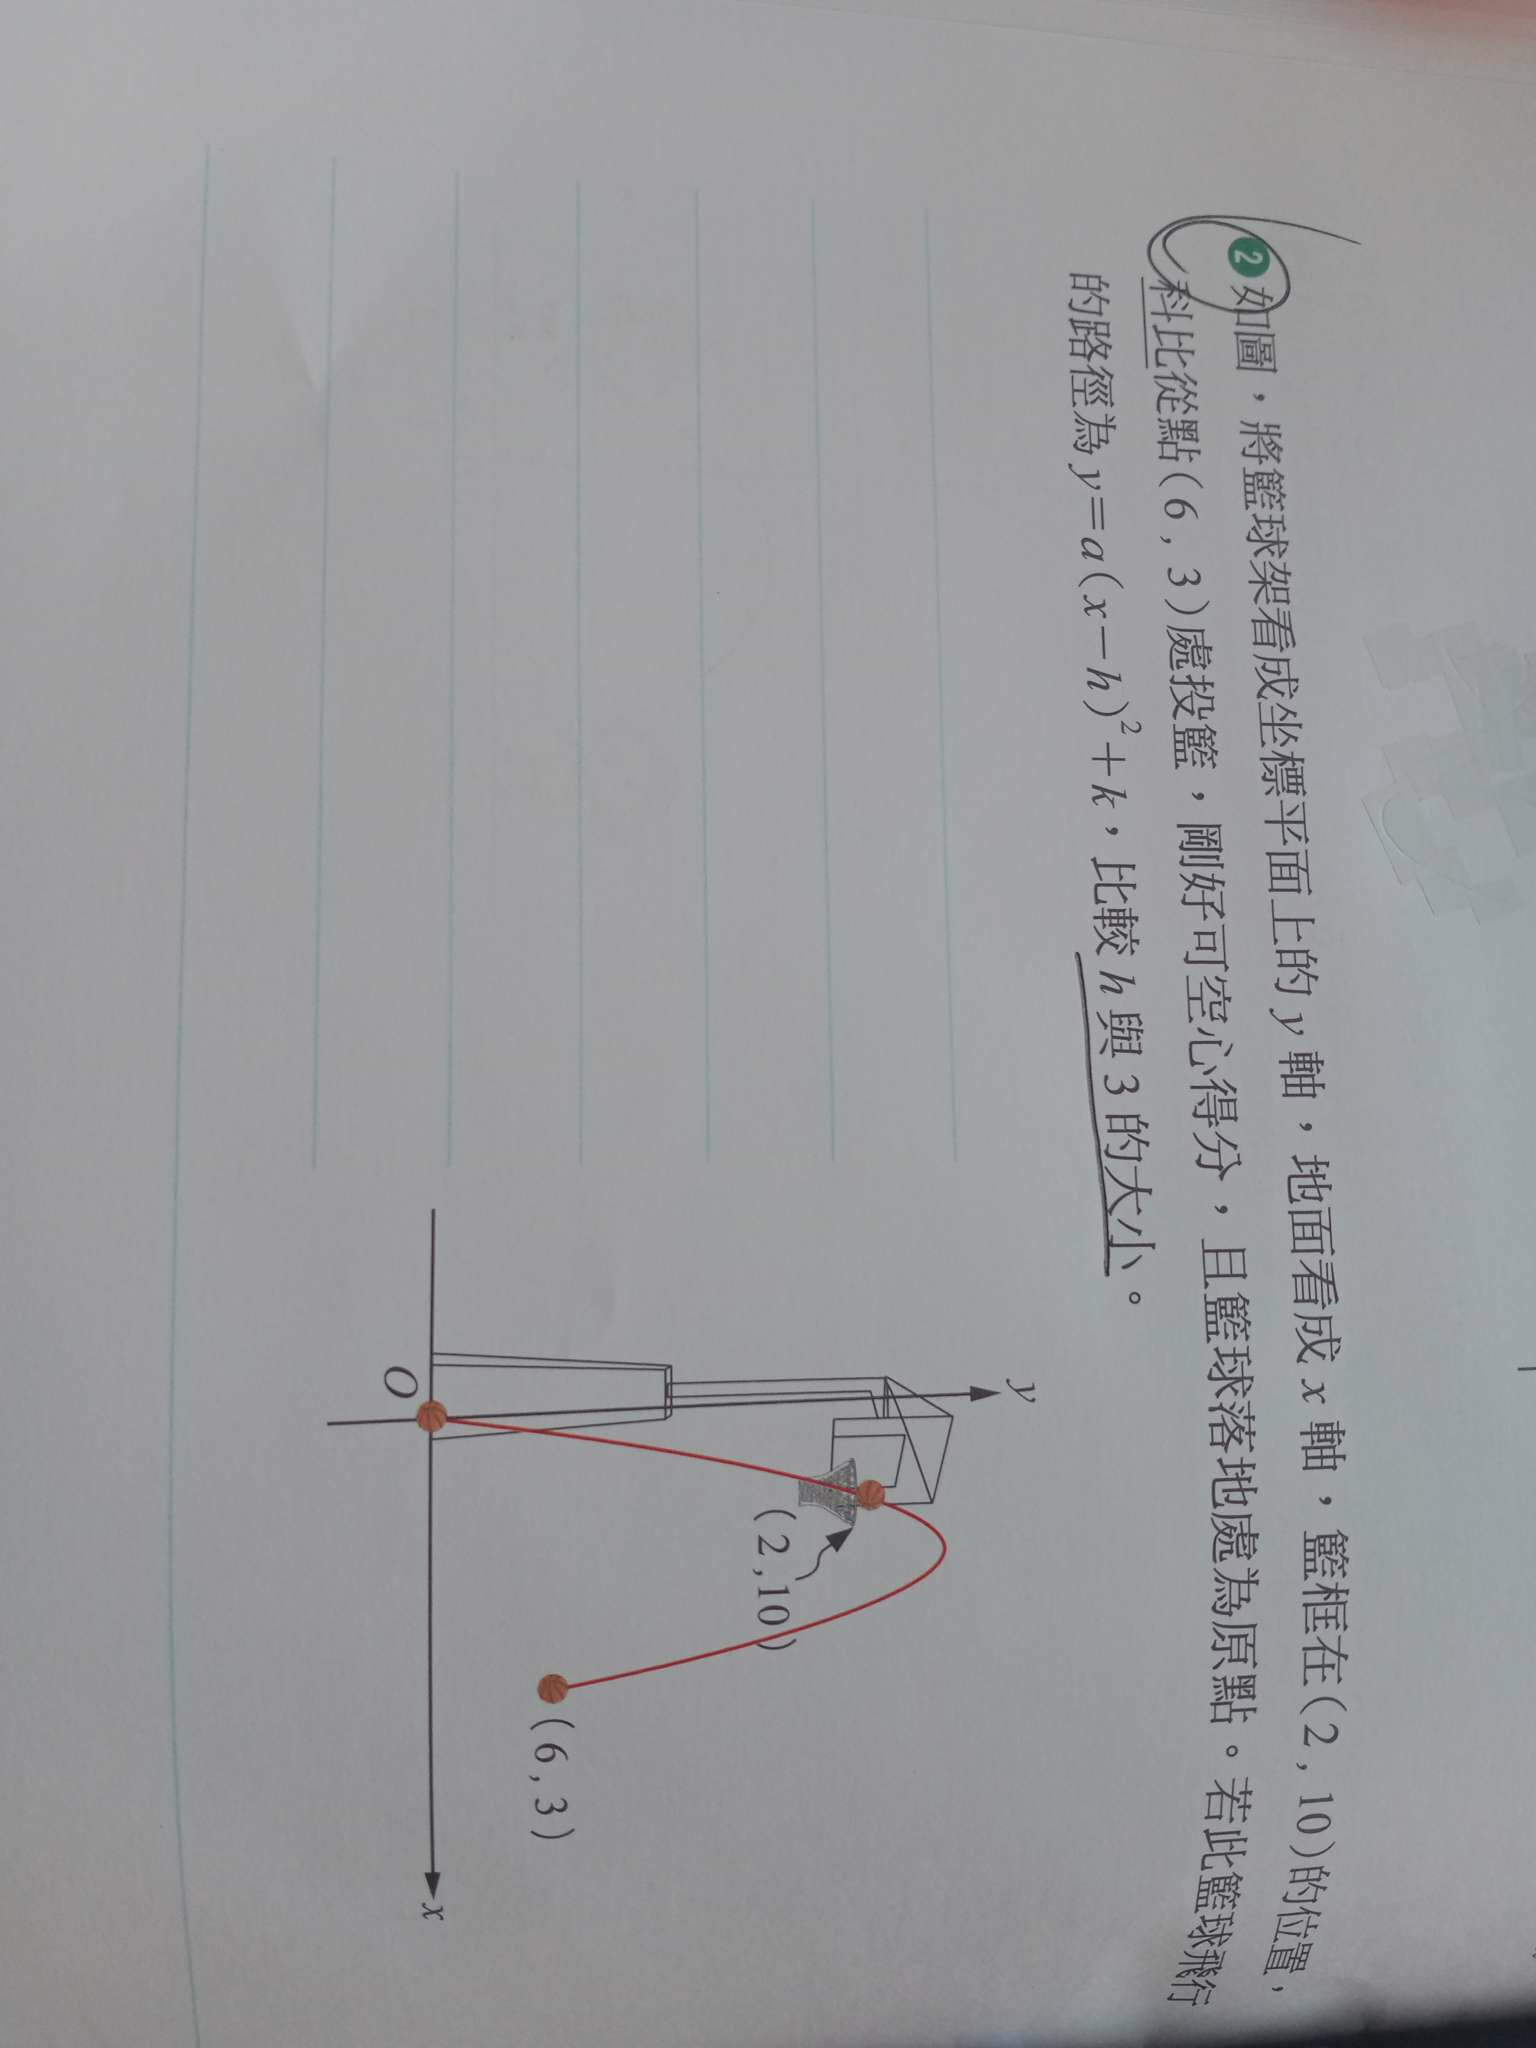 2 如圖，將籃球架看成坐標平面上的 y 軸，地面看成 x 軸，籃框在(2 , 10)的位置，
科比從點(6 , 3)處投籃，剛好可空心得分，且籃球落地處為原點。若此籃球飛行
的路徑為 y＝a(x－h)²＋k，比較 h 與 3 的大小。
y
(2 ,10)
(6 , 3)
O
x